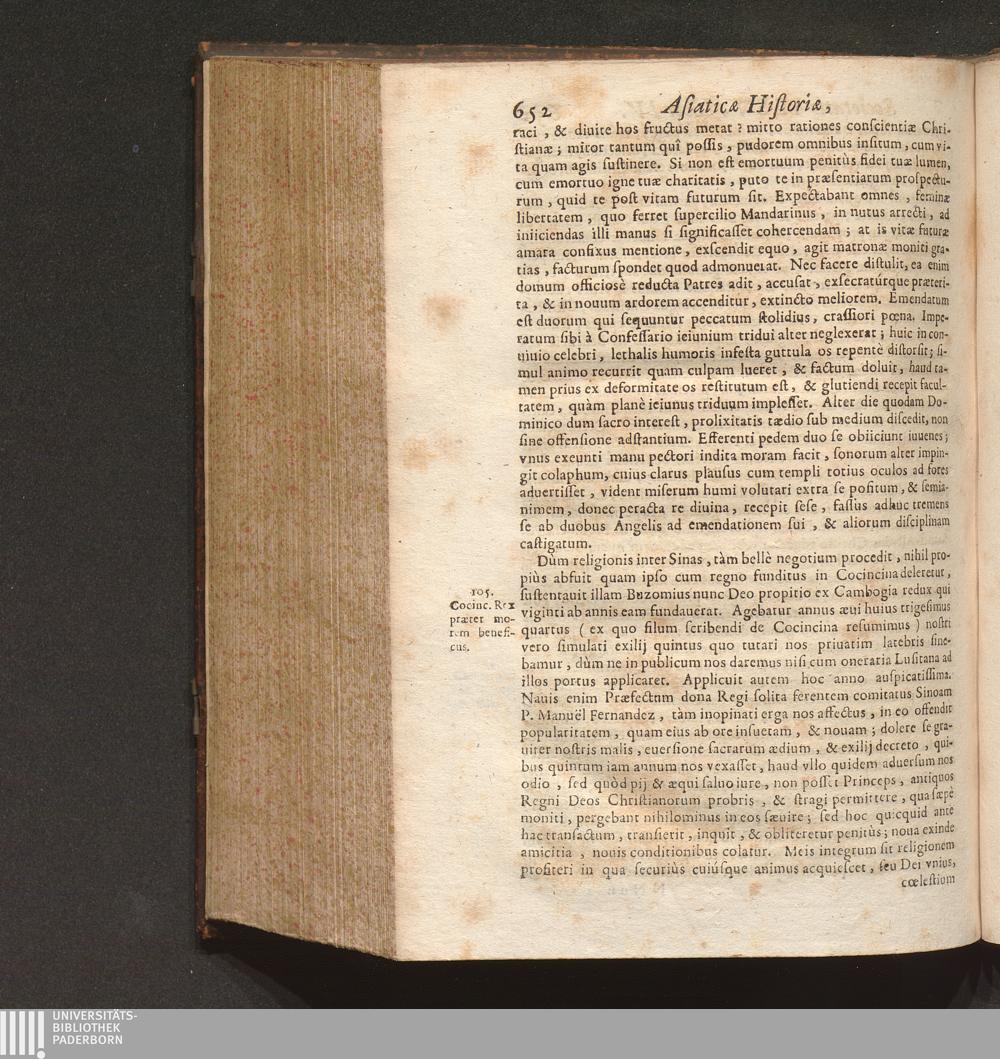 652 Asiaticæ Historiæ,
raci, & diuite hos fructus metat? mitto rationes conscientiæ Chri-
stianæ; miror tantum quî possis, pudorem omnibus insitum, cum vi-
ta quam agis sustinere. Si non est emortuum penitùs fidei tuæ lumen,
cum emortuo igne tuæ charitatis, puto te in præsentiarum prospectu-
rum, quid te post vitam futurum sit. Expectabant omnes, feminæ
libertatem, quo ferret supercilio Mandarinus, in nutus arrecti, ad
iniiciendas illi manus si significasset cohercendam; at is vitæ futuræ
amara confixus mentione, exscendit equo, agit matronæ moniti gra-
tias, facturum spondet quod admonuerat. Nec facere distulit, ea enim
domum officiosè reducta Patres adit, accusat, exsecratúrque præteri-
ta, & in nouum ardorem accenditur, extincto meliorem. Emendatum
est duorum qui sequuntur peccatum stolidius, crassiori pœna. Impe-
ratum sibi à Confessario ieiunium tridui alter neglexerat; huic in con-
uiuio celebri, lethalis humoris infesta guttula os repentè distorsit; si-
mul animo recurrit quam culpam lueret, & factum doluit, haud ta-
men prius ex deformitate os restitutum est, & glutiendi recepit facul-
tatem, quàm planè ieiunus triduum implesset. Alter die quodam Do-
minico dum sacro interest, prolixitatis tædio sub medium discedit, non
sine offensione adstantium. Efferenti pedem duo se obiiciunt iuuenes;
vnus exeunti manu pectori indita moram facit, sonorum alter impin-
git colaphum, cuius clarus plausus cum templi totius oculos ad fores
aduertisset, vident miserum humi volutari extra se positum, & semia-
nimem, donec peracta re diuina, recepit sese, fassus adhuc tremens
se ab duobus Angelis ad emendationem sui, & aliorum disciplinam
castigatum.
Dùm religionis inter Sinas, tàm bellè negotium procedit, nihil pro-
piùs abfuit quam ipso cum regno funditus in Cocincina deleretur,
105.
Cocinc. Rex
præter mo-
rem benefi-
cus.
sustentauit illam Buzomius nunc Deo propitio ex Cambogia redux qui
viginti ab annis eam fundauerat. Agebatur annus æui huius trigesimus
quartus (ex quo filum scribendi de Cocincina resumimus) nostri
vero simulati exilij quintus quo tutari nos priuatim latebris sine-
bamur, dùm ne in publicum nos daremus nisi cum oneraria Lusitana ad
illos portus applicaret. Applicuit autem hoc anno auspicatissima.
Nauis enim Præfectum dona Regi solita ferentem comitatus Sinoam
P. Manuël Fernandez, tàm inopinati erga nos affectus, in eo offendit
popularitatem, quam eius ab ore insuetam, & nouam; dolere se gra-
uiter nostris malis, euersione sacrarum ædium, & exilij decreto, qui-
bus quintum iam annum nos vexasset, haud vllo quidem aduersum nos
odio, sed quòd pij & æqui saluo iure, non posset Princeps, antiquos
Regni Deos Christianorum probris, & stragi permittere, qua sæpè
moniti, pergebant nihilominus in eos sæuire; sed hoc quicquid ante
hac transactum, transierit, inquit, & obliteretur penitùs; noua exinde
amicitia, nouis conditionibus colatur. Meis integrum sit religionem
profiteri in qua securiùs cuiúsque animus acquiescet, seu Dei vnius,
cœlestium
UNIVERSITÄTS-
BIBLIOTHEK
PADERBORN